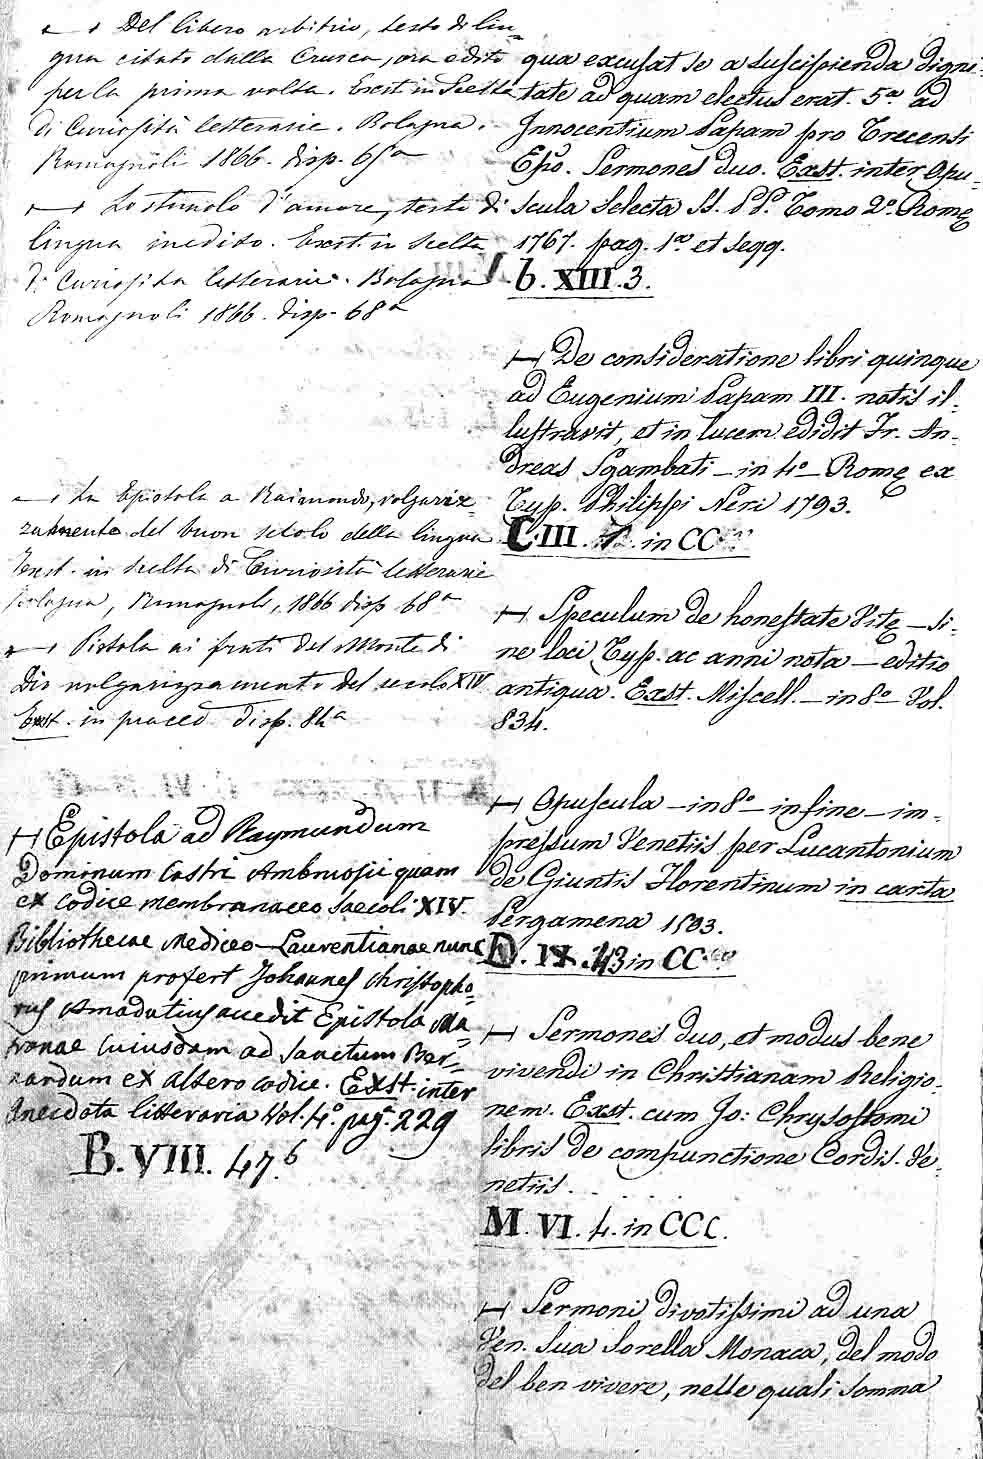 ⊢⊣ Del libero arbitrio, testo di lin=
gua citato dalla Crusca, ora edito
per la prima volta. Exest. in Scelta
di Curiosità letterarie. Bologna.
Romagnoli 1866. disp. 65ª
⊢⊣ Lo stimolo d'amore, testo di
lingua inedito. Exest. in Scelta
di Curiosita letterarie. Bologna
Romagnoli 1866. disp. 68ª
⊢⊣ La Epistola a Raimondo, volgariz-
zamento del buon secolo della lingua
Exest. in Scelta di Curiosità letterarie
Bologna, Romagnoli, 1866 disp 68ª
⊢⊣ Pistola ai frati del Monte di
Dio volgarizzamento del secolo XIV
Exst. in praeced. disp. 84ª
⊢⊣ Epistola ad Raymundum
Dominum Castri Ambruosii quam
ex codice membranaceo saecoli XIV.
Bibliothecae Mediceo-Laurentianae nunc
primum profert Johannes Christopho-
rus Amadutius accedit Epistola Ma-
tronae cuiusdam ad Sanctum Ber-
nardum ex altero codice. Exst. inter
Anecdota litteraria Vol. 4.º pag. 229
B. VIII. 47.6
qua excusat se a suscipienda digni-
tate ad quam electus erat. 5ª ad
Innocentium Papam pro Trecensi
Epõ. Sermones duo. Exst. inter Opu-
scula Selecta SS. PP. Tomo 2º. Romę
1767. pag. 1ª et seqq.
b. XIII. 3.
⊢⊣ De consideratione libri quinque
ad Eugenium Papam III. notis il-
lustravit, et in lucem edidit Fr. An-
dreas Sgambati - in 4º - Romę ex
Typ. Philippi Neri 1793.
C. III. in CC
⊢⊣ Speculum de honestate Vitę - si-
ne loci Typ. ac anni nota - editio
antiqua. Exst. Miscell. - in 8º - Vol.
834.
⊢⊣ Opuscula - in 8º - in fine - im-
pressum Venetiis per Lucantonium
de Giuntis Florentinum in carta
Pergamena 1503.
D. IX. 43 in CC
⊢⊣ Sermones duo, et modus bene
vivendi in Christianam Religio-
nem. Exst. cum Jo: Chrysostomi
libris de compunctione Cordis. Ve-
netiis. . . . .
M. VI. 4. in CCC.
⊢⊣ Sermoni divotissimi ad una
Ven. Sua Sorella Monaca, del modo
del ben vivere, nelle quali somma